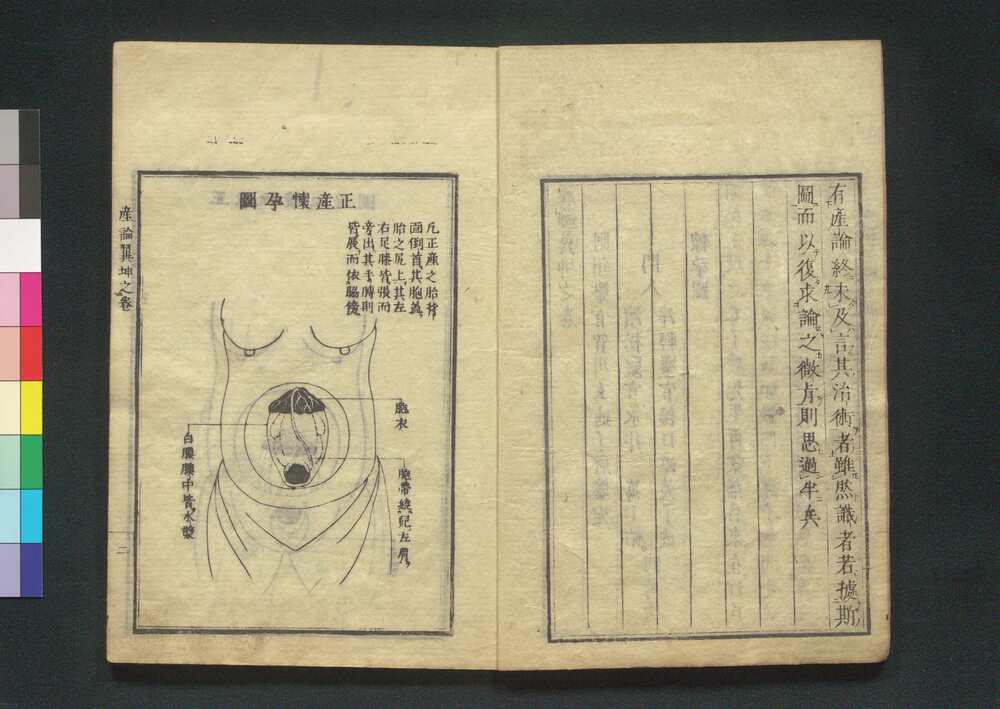 有産論終未及言其治術者雖然識者若據斯
圖而以復求論之微旨則思過半矣
正産懷孕圖
凡正産之胎背
面倒首其胞蓋
胎之尻上其左
右足膝皆張而
旁出其手膊則
皆展而依脇後
胞衣
胞帶繞兒左肩
白膜膜中皆水漿
産論翼坤之卷
二